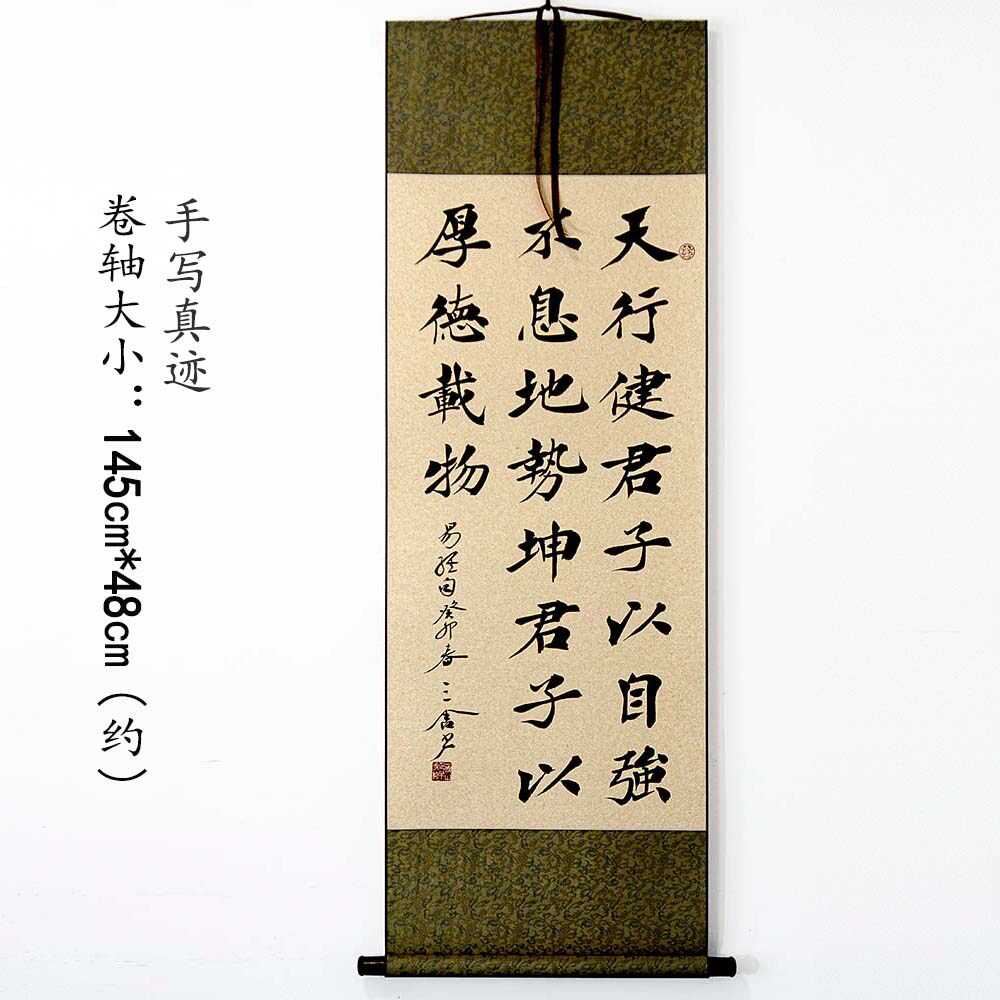 手写真迹
卷轴大小：145cm*48cm（约）
天行健君子以自強
不息地勢坤君子以
厚德載物
易經句癸卯春